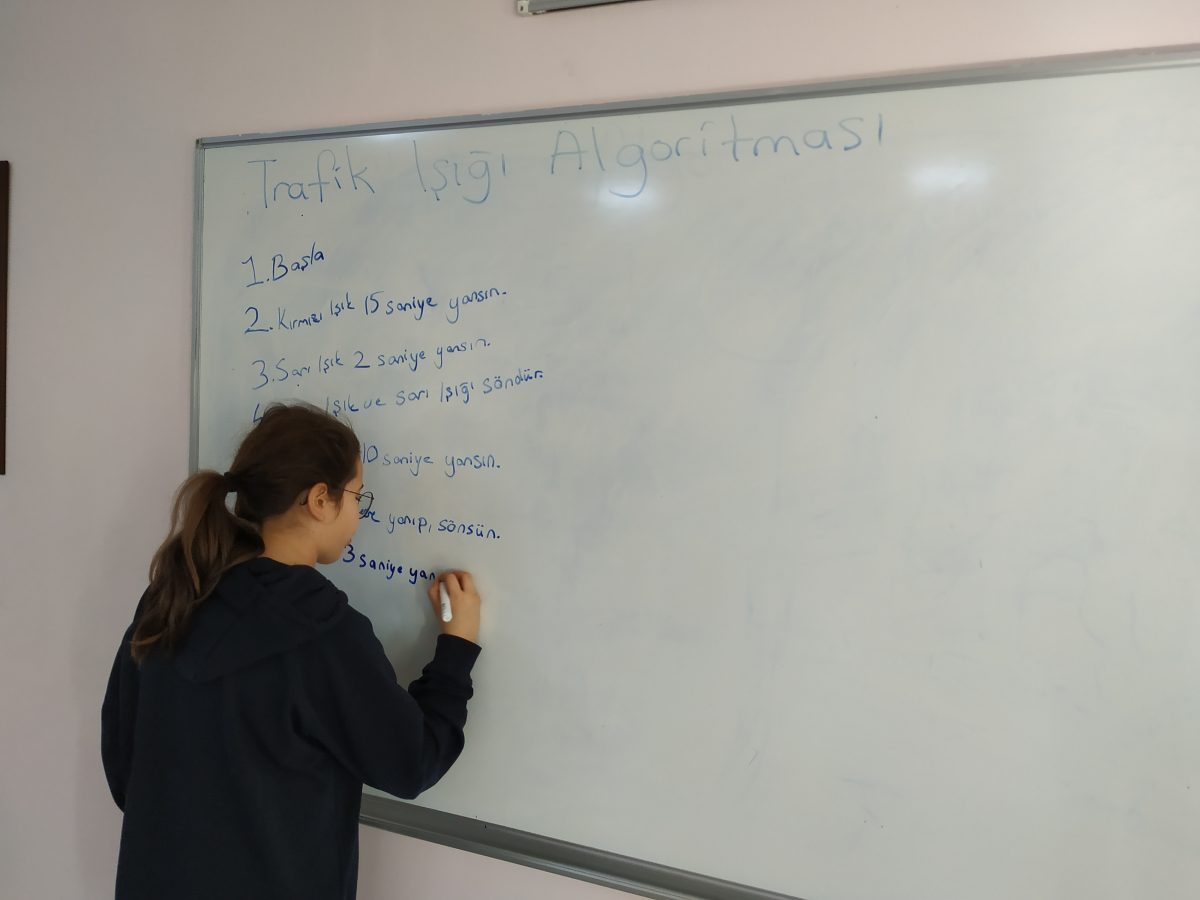 Trafik Işığı Algoritması
1. Başla
2. Kırmızı Işık 15 saniye yansın.
3. Sarı Işık 2 saniye yansın.
4. Işık ve sarı Işığı söndür.
10 saniye yansın.
yanıp, sönsün.
3 saniye yan